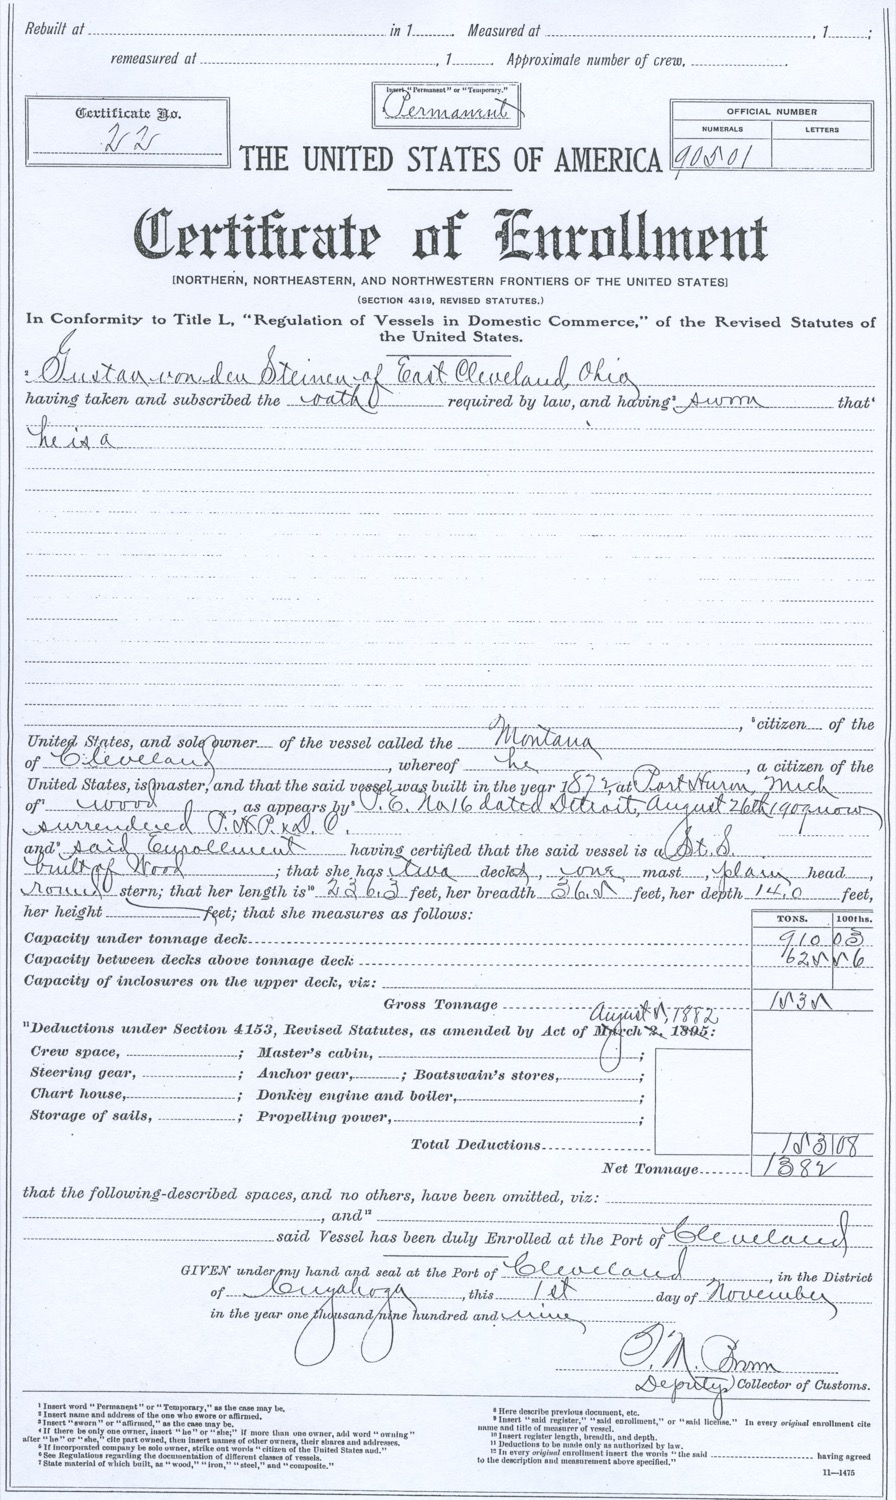 Rebuilt at in 1 Measured at , 1 ;
remeasured at , 1 Approximate number of crew,
Insert "Permanent" or "Temporary."
Permanent
Certificate No.
22
OFFICIAL NUMBER
NUMERALS LETTERS
90501
THE UNITED STATES OF AMERICA
Certificate of Enrollment
[NORTHERN, NORTHEASTERN, AND NORTHWESTERN FRONTIERS OF THE UNITED STATES]
(SECTION 4319, REVISED STATUTES.)
In Conformity to Title L, "Regulation of Vessels in Domestic Commerce," of the Revised Statutes of
the United States.
2 Gustav von den Steinen of East Cleveland, Ohio
having taken and subscribed the oath required by law, and having3 sworn that4
he is a
, 5citizen of the
United States, and sole owner of the vessel called the Montana
of Cleveland, whereof he, a citizen of the
United States, is master, and that the said vessel was built in the year 1872, at Port Huron, Mich
of7 wood, as appears by8 P. E. No 16 dated Detroit, August 26th 1909 now
surrendered
and9 said Enrollment having certified that the said vessel is a St. S.
built of Wood; that she has two decks, one mast, plain head,
round stern; that her length is10 236.3 feet, her breadth 36.5 feet, her depth 14.0 feet,
her height feet; that she measures as follows:
TONS. 100ths.
Capacity under tonnage deck 910 03
Capacity between decks above tonnage deck 625 56
Capacity of inclosures on the upper deck, viz:
Gross Tonnage 1535
August 5, 1882
11Deductions under Section 4153, Revised Statutes, as amended by Act of March 2, 1895:
Crew space, ; Master's cabin, ;
Steering gear, ; Anchor gear, ; Boatswain's stores, ;
Chart house, ; Donkey engine and boiler, ;
Storage of sails, ; Propelling power, ;
Total Deductions 153 08
Net Tonnage 1382
that the following-described spaces, and no others, have been omitted, viz:
, and12
said Vessel has been duly Enrolled at the Port of Cleveland
GIVEN under my hand and seal at the Port of Cleveland, in the District
of Cuyahoga, this 1st day of November
in the year one thousand nine hundred and nine
Deputy Collector of Customs.
1 Insert word "Permanent" or "Temporary," as the case may be.
2 Insert name and address of the one who swore or affirmed.
3 Insert "sworn" or "affirmed," as the case may be.
4 If there be only one owner, insert "he" or "she;" if more than one owner, add word "owning"
after "he" or "she," cite part owned, then insert names of other owners, their shares and addresses.
5 If incorporated company be sole owner, strike out words "citizen of the United States and."
6 See Regulations regarding the documentation of different classes of vessels.
7 State material of which built, as "wood," "iron," "steel," and "composite."
8 Here describe previous document, etc.
9 Insert "said register," "said enrollment," or "said license." In every original enrollment cite
name and title of measurer of vessel.
10 Insert register length, breadth, and depth.
11 Deductions to be made only as authorized by law.
12 In every original enrollment insert the words "the said having agreed
to the description and measurement above specified."
11—1475